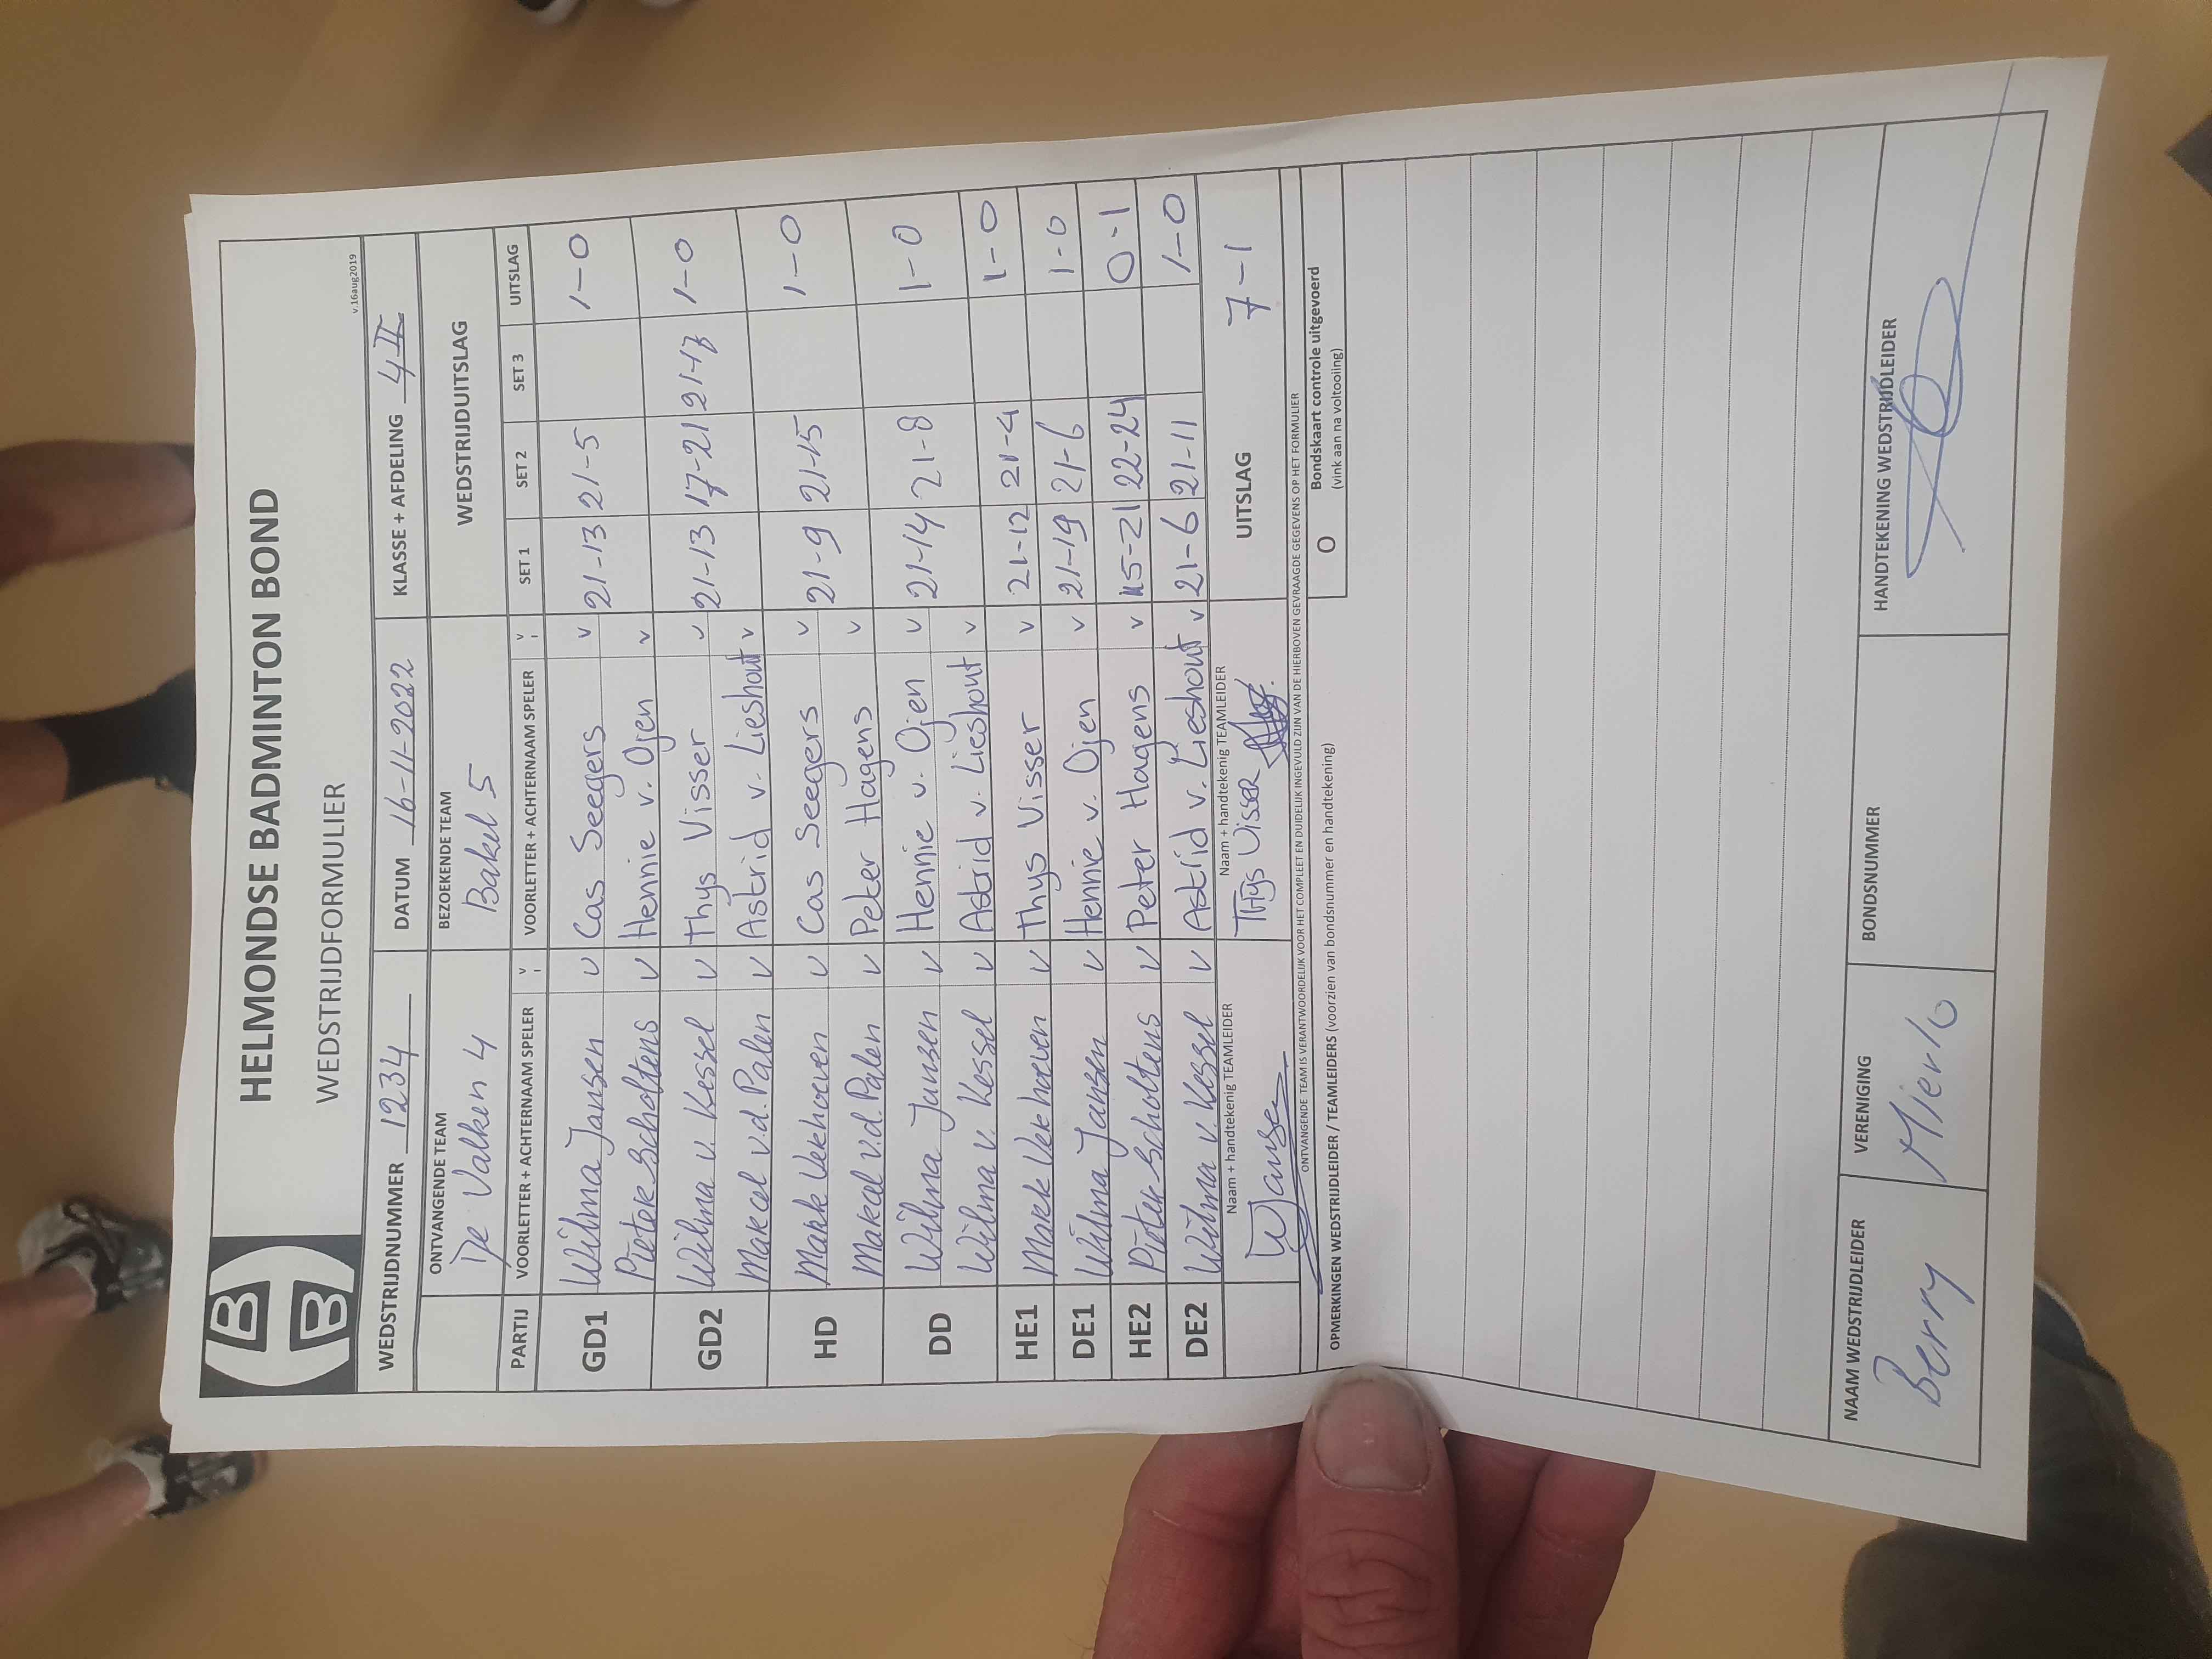 HELMONDSE BADMINTON BOND
WEDSTRIJDFORMULIER
v.16aug2019
WEDSTRIJDNUMMER 1234 DATUM 16-11-2022 KLASSE + AFDELING 4II
ONTVANGENDE TEAM BEZOEKENDE TEAM WEDSTRIJDUITSLAG
De Valken 4 Bakel 5
PARTIJ VOORLETTER + ACHTERNAAM SPELER v VOORLETTER + ACHTERNAAM SPELER v SET 1 SET 2 SET 3 UITSLAG
GD1 Wilma Jansen v Cas Seegers v 21-13 21-5 1-0
Pieter Scholtens v Hennie v. Ojen v
GD2 Wilma v. Kessel v Thys Visser v 21-13 17-21 21-17 1-0
Marcel v.d. Palen v Astrid v. Lieshout v
HD Mark Verhoeven v Cas Seegers v 21-9 21-15 1-0
Marcel v.d. Palen v Peter Hagens v
DD Wilma Jansen v Hennie v. Ojen v 21-14 21-8 1-0
Wilma v. Kessel v Astrid v. Lieshout v
HE1 Mark Verhoeven v Thys Visser v 21-12 21-4 1-0
DE1 Wilma Jansen v Hennie v. Ojen v 21-19 21-6 1-0
HE2 Pieter Scholtens v Peter Hagens v 15-21 22-24 0-1
DE2 Wilma v. Kessel v Astrid v. Lieshout v 21-6 21-11 1-0
Naam + handtekenig TEAMLEIDER Naam + handtekenig TEAMLEIDER UITSLAG 7-1
WJansen Thys Visser
ONTVANGENDE TEAM IS VERANTWOORDELIJK VOOR HET COMPLEET EN DUIDELIJK INGEVULD ZIJN VAN DE HIERBOVEN GEVRAAGDE GEGEVENS OP HET FORMULIER
OPMERKINGEN WEDSTRIJDLEIDER / TEAMLEIDERS (voorzien van bondsnummer en handtekening)
O Bondskaart controle uitgevoerd
(vink aan na voltooiing)
NAAM WEDSTRIJDLEIDER VERENIGING BONDSNUMMER HANDTEKENING WEDSTRIJDLEIDER
Berry Mierlo